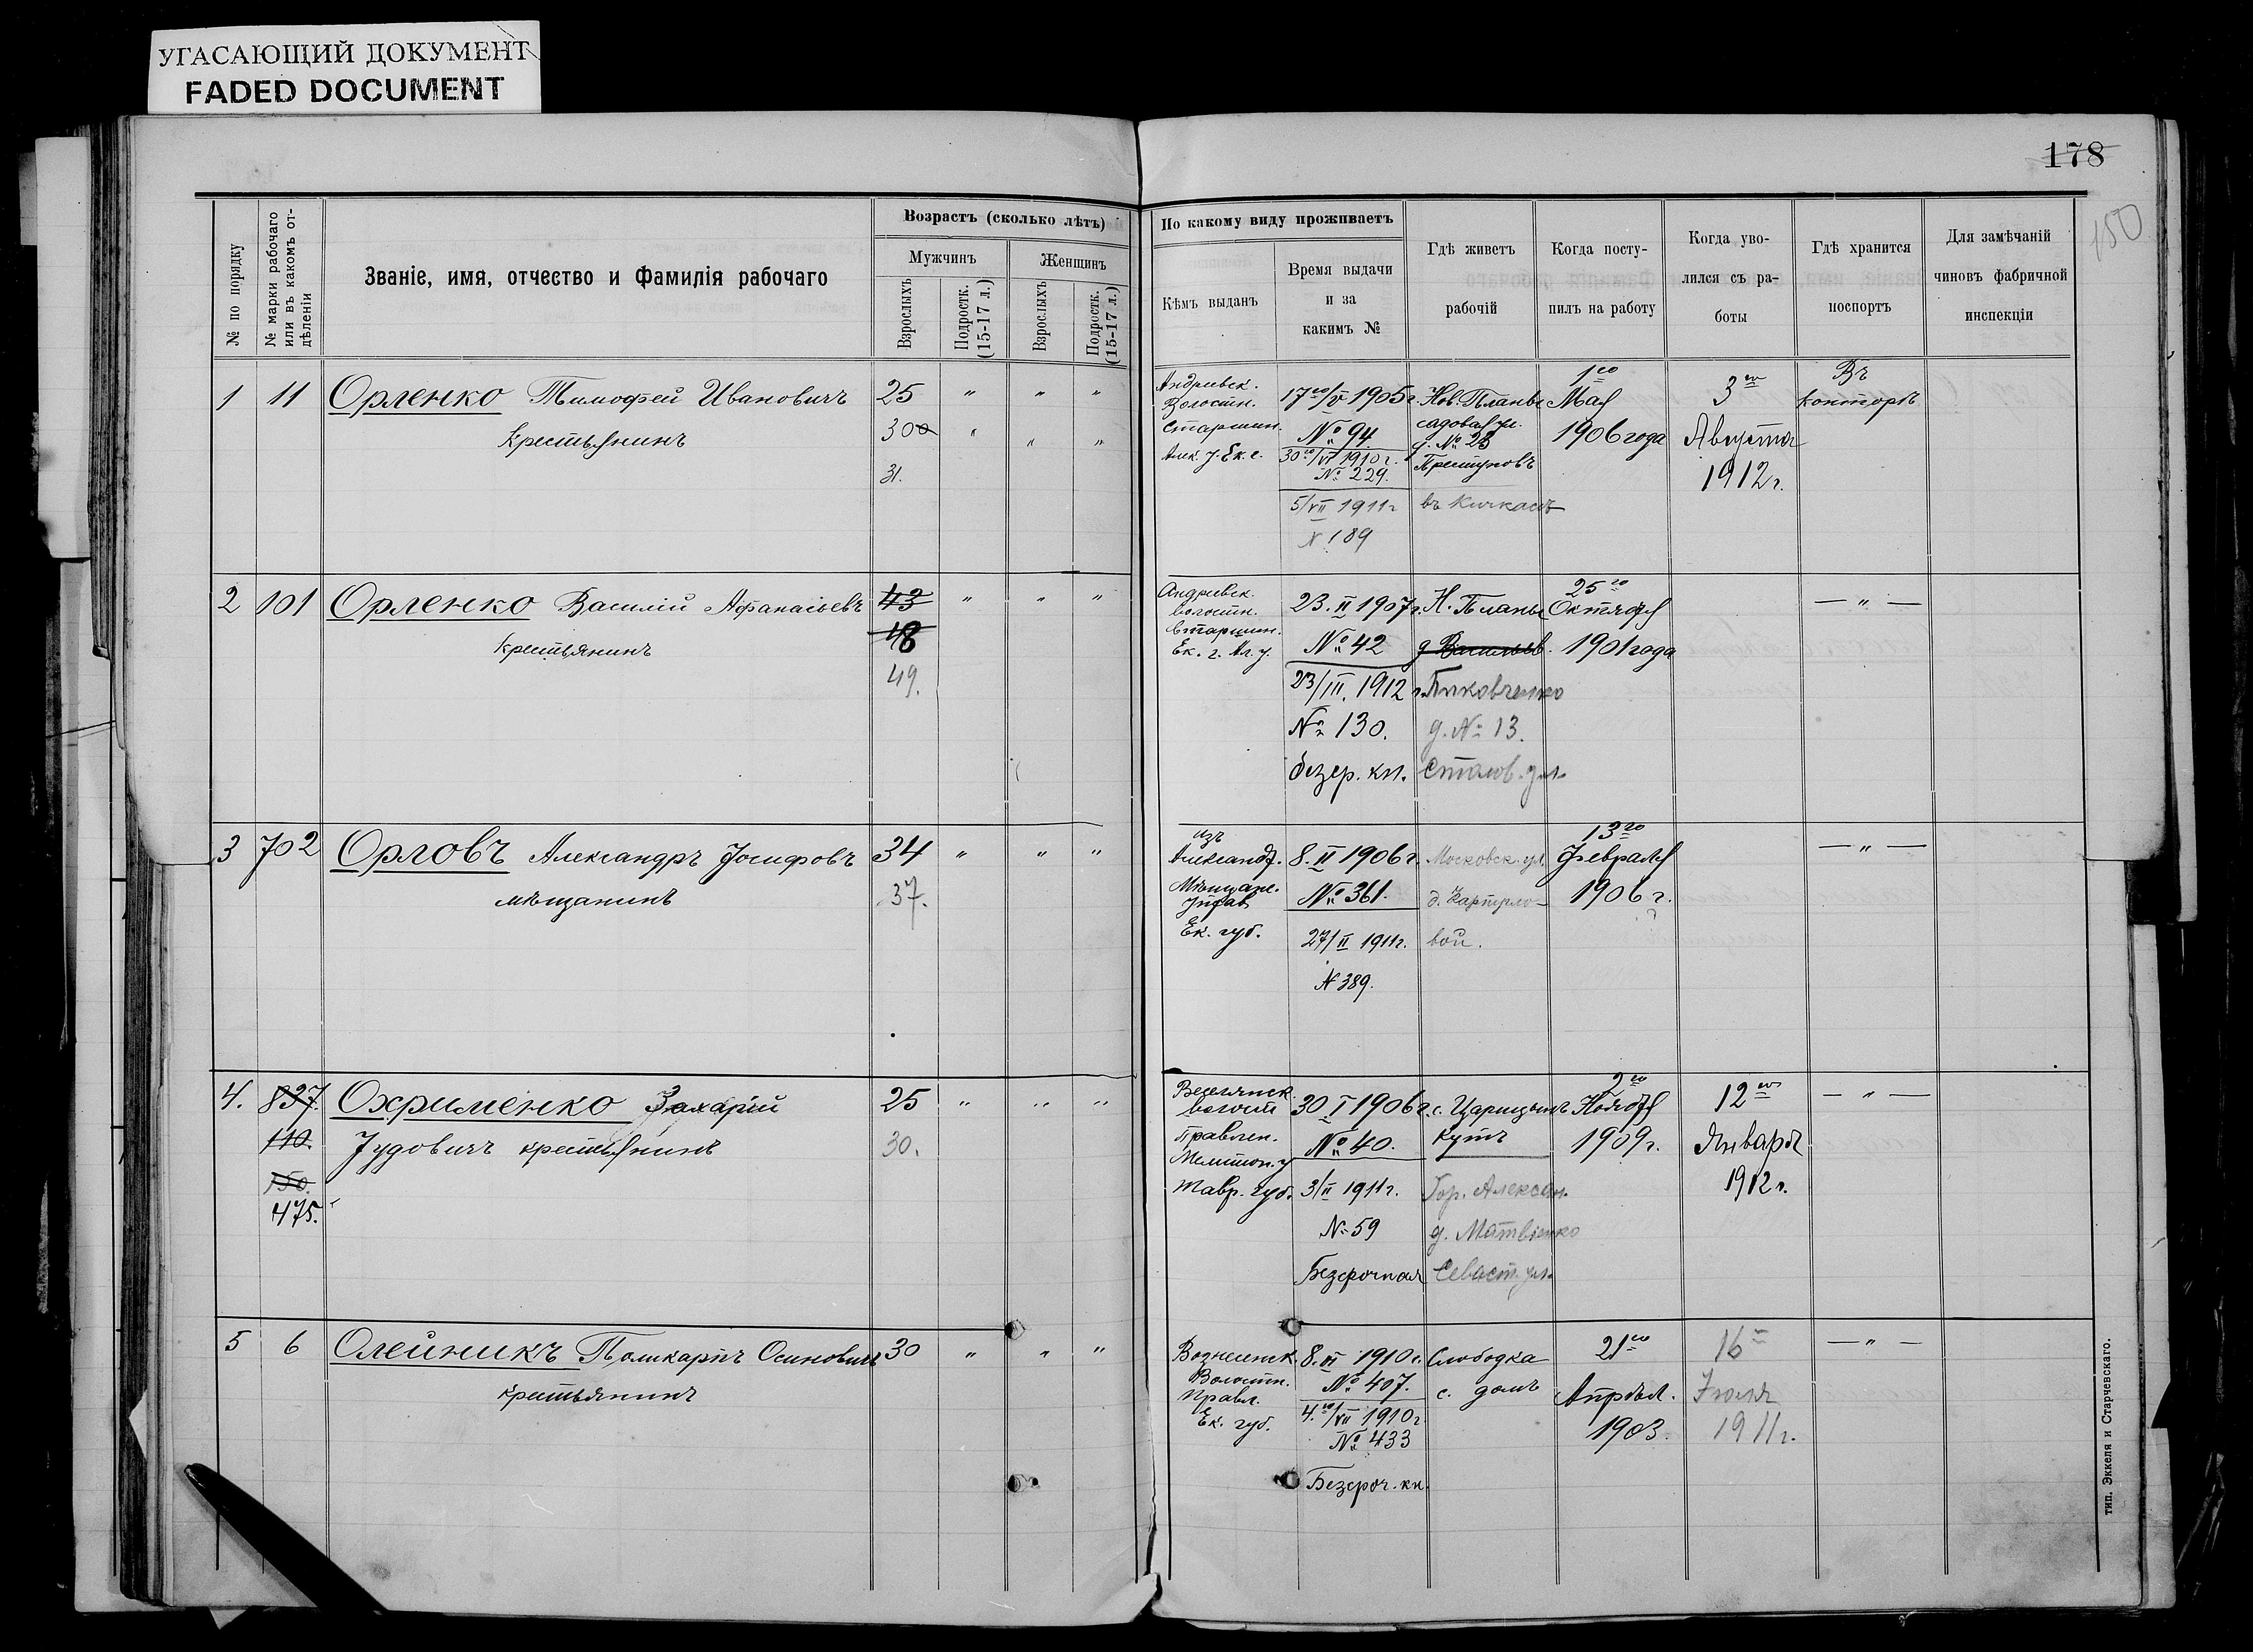 УГАСАЮЩИЙ ДОКУМЕНТ
FADED DOCUMENT
178
150
№ по порядку
№ марки рабочаго
или въ какомъ от-
дѣленіи
Званіе, имя, отчество и фамилія рабочаго
Возрастъ (сколько лѣтъ)
Мужчинъ
Женщинъ
Взрослыхъ
Подростк.
(15-17 л.)
Взрослыхъ
Подростк.
(15-17 л.)
По какому виду проживаетъ
Кѣмъ выданъ
Время выдачи
и за
какимъ №
Гдѣ живетъ
рабочій
Когда посту-
пилъ на работу
Когда уво-
лился съ ра-
боты
Гдѣ хранится
поспортъ
Для замѣчаній
чиновъ фабричной
инспекціи
1 11 Орленко Тимофей Ивановичъ 25 " " "
крестьянинъ 300 " " "
31.
Андреевск.
Волостн.
Старшин.
Алек. у. Ек. г.
17го/V 1905 г.
№ 94.
30го/VI 1910 г.
№ 229.
5/VII 1911 г
N 189
Нов. Планы
садовая ул.
д. № 28
въ Кичкасѣ
1го
Мая
1906 года
3го
Августа
1912 г.
Въ
конторѣ
2 101 Орленко Василій Афанасьевъ 43 " " "
крестьянинъ 48
49.
Андреевск.
волостн.
Старшин.
Ек. г. Ал. у.
23. II 1907 г.
№ 42
23/III. 1912 г.
№ 130.
безср. кн.
Н. Планы
д. Васильев.
Пиковченко
д. № 13.
25го
Октября
1901 года
— " —
3 702 Орловъ Александръ Іосифовъ 34 " " "
мѣщанинъ 37.
из
Александр.
Мѣщане.
Управ
Ек. губ.
8. II 1906 г.
№ 361.
27/II 1911 г.
N 389.
Московск. ул.
вой.
13го
Февраля
1906 г.
— " —
4. 837. Охрименко Захарій 25 " " "
110. Іудовичъ крестьянинъ 30.
150.
475.
волост
Правлен.
Мелитоп. у
Тавр. губ.
30 I 1906 г.
№ 40.
3/II 1911 г.
№ 59
Безсрочная
с. Царицынъ
Кутъ
Гор. Алексан.
д. Матвіенко
Севаст. ул.
2го
Ноября
1909 г.
12го
Января
1912 г.
— " —
5 6 Олейникъ Поликарпъ Осиповичъ 30 " " "
крестьянинъ
Вознесенск.
Волостн.
Правл.
Ек. губ.
8. VI 1910 г.
№ 407.
4.го/VII 1910 г.
№ 433
Безсроч. кн.
Слободка
с. домъ
21го
Апрѣл.
1903.
16го
Іюля
1911 г.
— " —
тип. Эккеля и Старчевскаго.